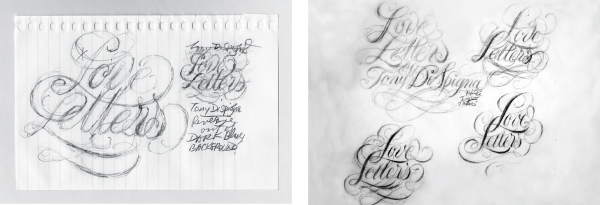 Love
Letters
Tony DiSpigna
Love
Letters
Tony DiSpigna
Reverse
out of
DARK Blue
BACKGROUND
Love
Letters
by
Tony DiSpigna
Love
Letters
Love
Letters
Love
Letters